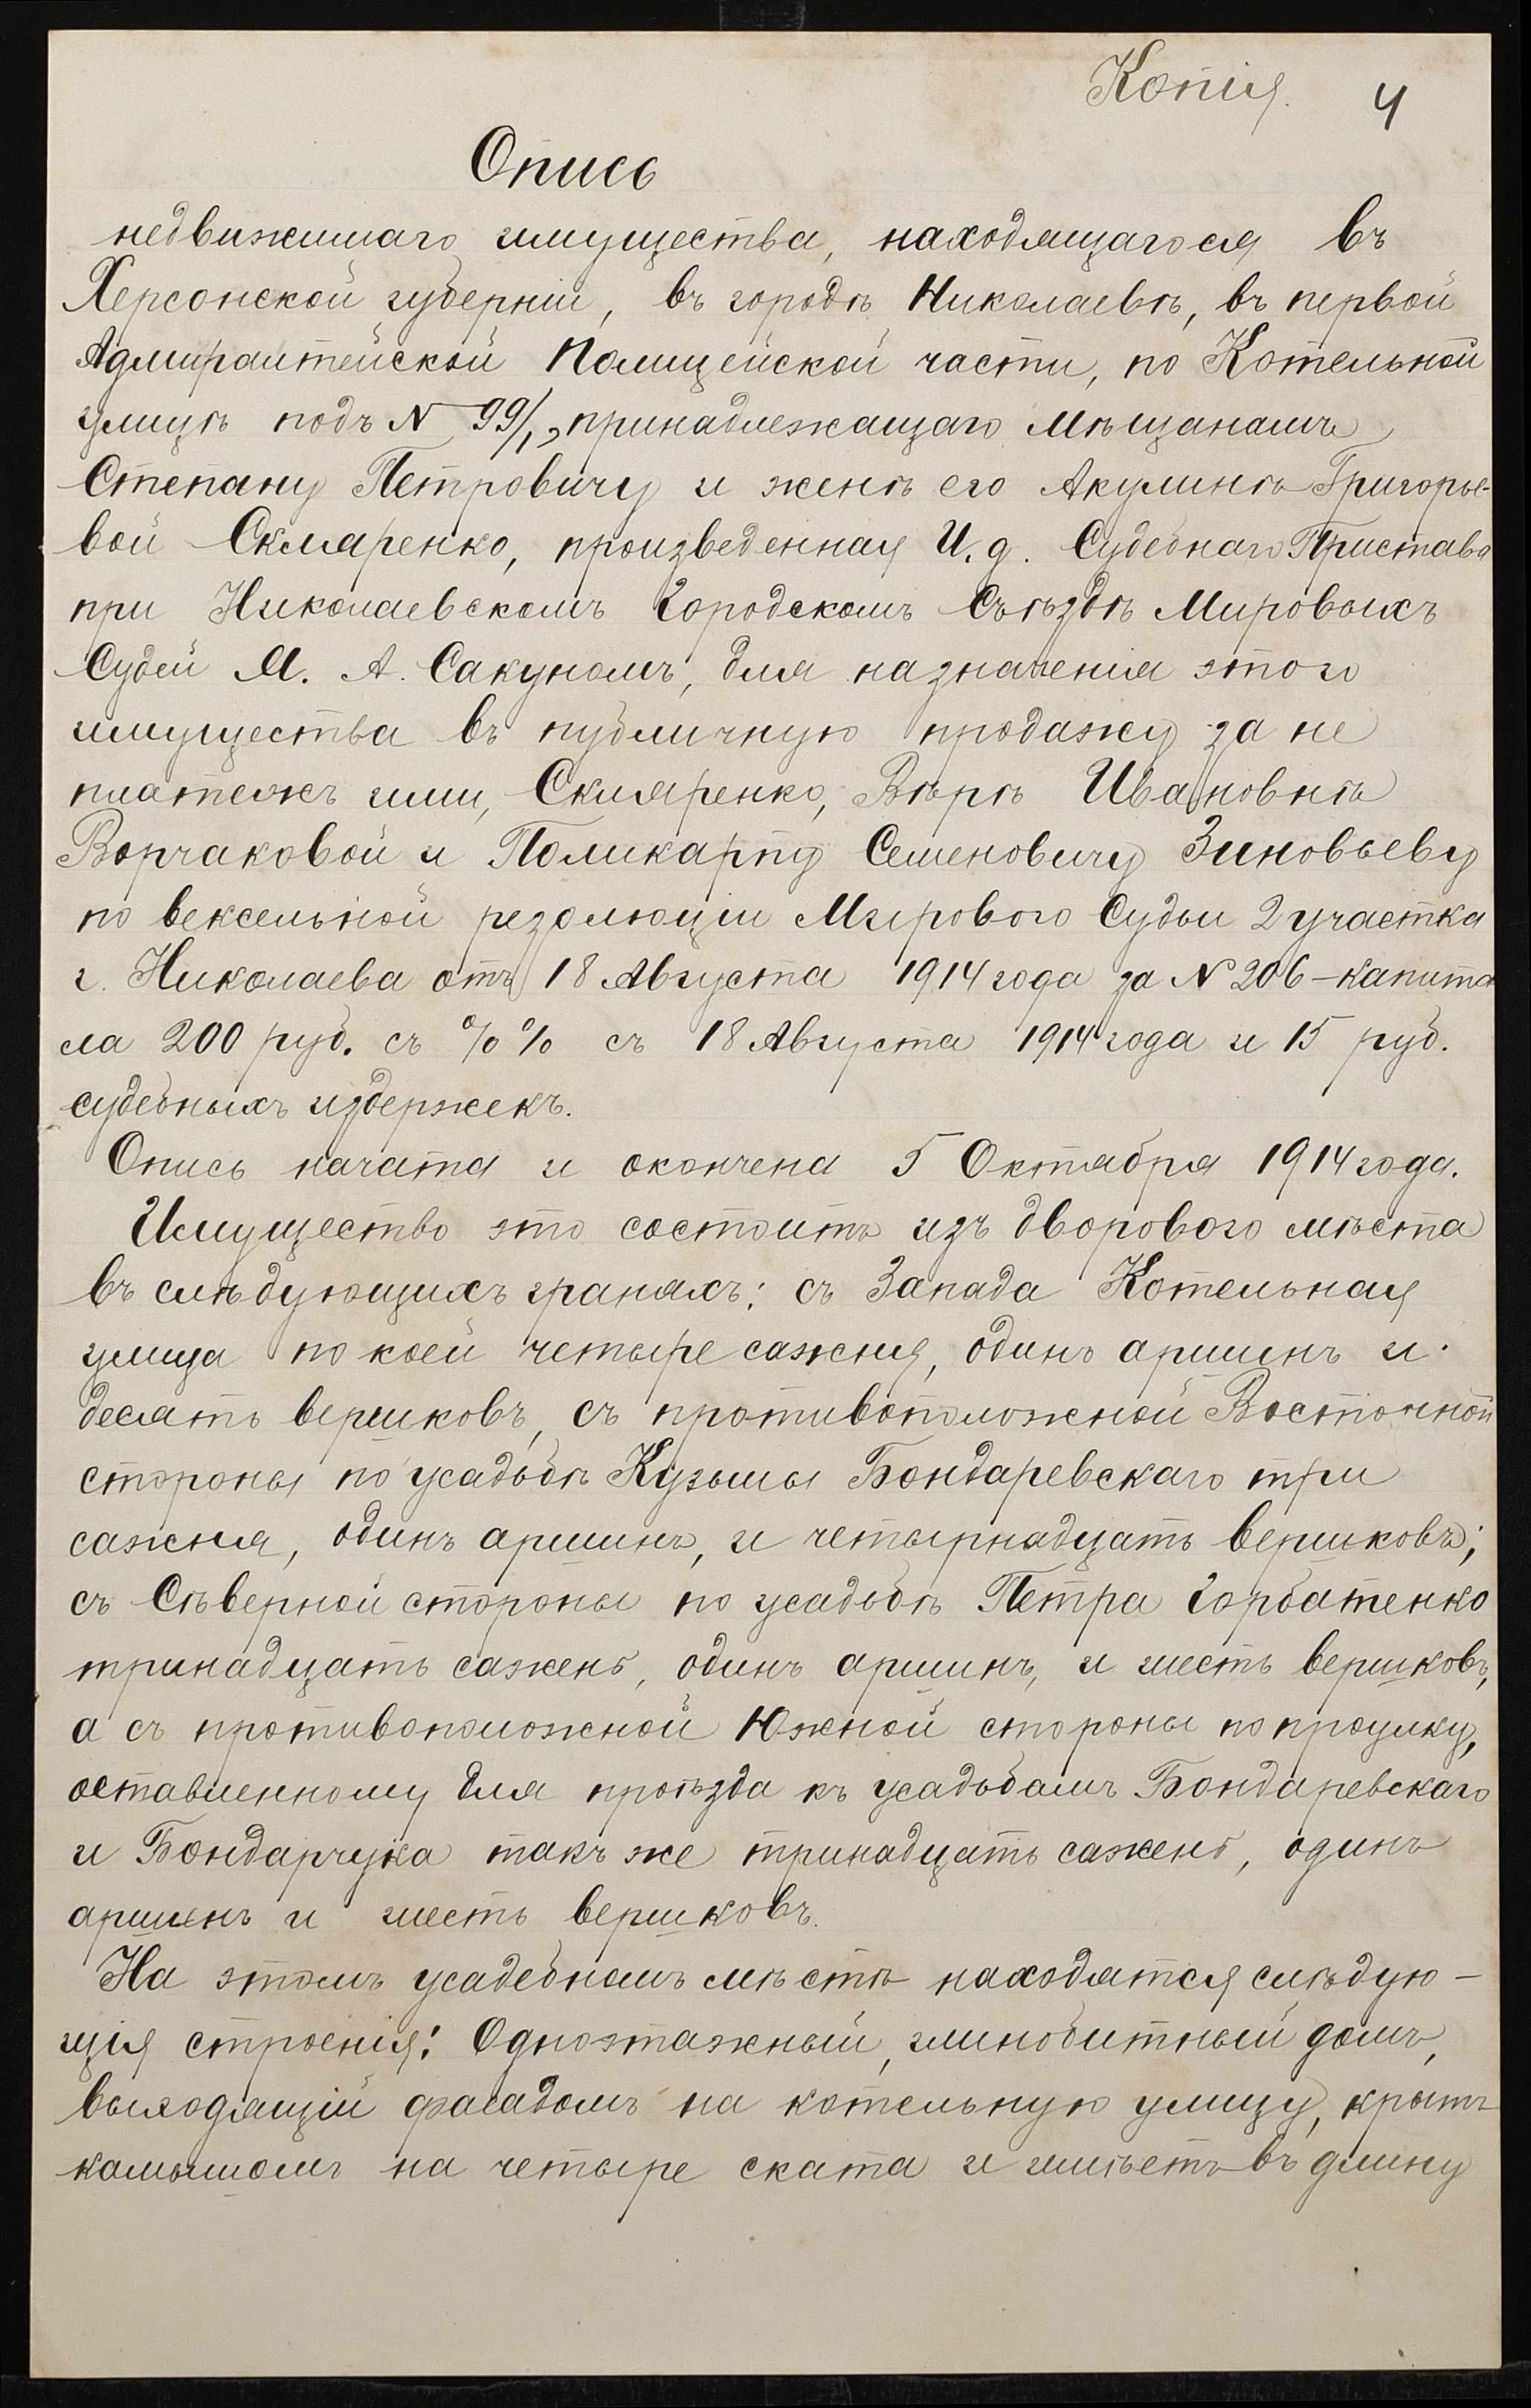 Копія. 4
Опись
недвижимаго имущества, находящагося въ
Херсонской губерніи, въ городѣ Николаевѣ, въ первой
Адмиралтейской Полицейской части, по Котельной
улицѣ подъ N 99/1, принадлежащаго Мѣщанамъ
Степану Петровичу и женѣ его Акулинѣ Григорье-
вой Скляренко, произведенная И. д. Судебнаго Пристава
при Николаевскомъ Городскомъ Съѣздѣ Мировыхъ
Судей М. А. Сакуномъ, для назначенія этого
имущества въ публичную продажу за не
платежъ ими, Скляренко, Вѣрѣ Ивановнѣ
Ворчаковой и Поликарпу Семеновичу Зиновьеву
по вексельной резолюціи Мирового Судьи 2 участка
г. Николаева отъ 18 Августа 1914 года за N 206 – капита
ла 200 руб. съ %% съ 18 Августа 1914 года и 15 руб.
судебныхъ издержекъ.
Опись начата и окончена 5 Октября 1914 года.
Имущество это состоитъ изъ дворового мѣста
въ слѣдующихъ граняхъ: съ Запада Котельная
улица по коей четыре сажня, одинъ аршинъ и
десять вершковъ, съ противоположной Восточной
стороны по усадьбѣ Кузьмы Бондаревскаго три
сажня, одинъ аршинъ, и четырнадцать вершковъ;
съ Сѣверной стороны по усадьбѣ Петра Горбатенко
тринадцать сажень, одинъ аршинъ, и шесть вершковъ,
а съ противоположной Южной стороны по проулку,
оставленному для проѣзда къ усадьбамъ Бондаревскаго
и Бондарчука такъ же тринадцать сажень, одинъ
аршинъ и шесть вершковъ.
На этомъ усадебномъ мѣстѣ находятся слѣдую –
щія строенія: Одноэтажный, глинобитный домъ,
выходящій фасадомъ на котельную улицу, крытъ
камышомъ на четыре ската и имѣетъ въ длину